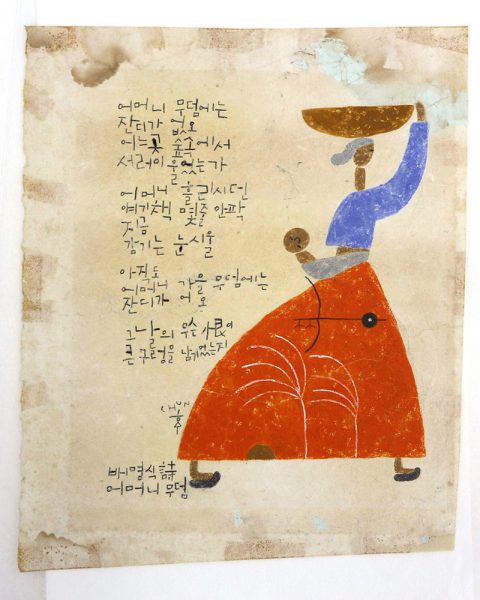 어머니 무덤에는
잔디가 없오
어느곳 숲속에서
서러이 울었는가
어머니 흘리시던
얘기책 몇줄 안팍
지금
감기는 눈시울
아직도
어머니 가을 무덤에는
잔디가 어오
그날의 무슨 恨이
큰 구렁을 남겼는지
배명식 詩
어머니 무덤